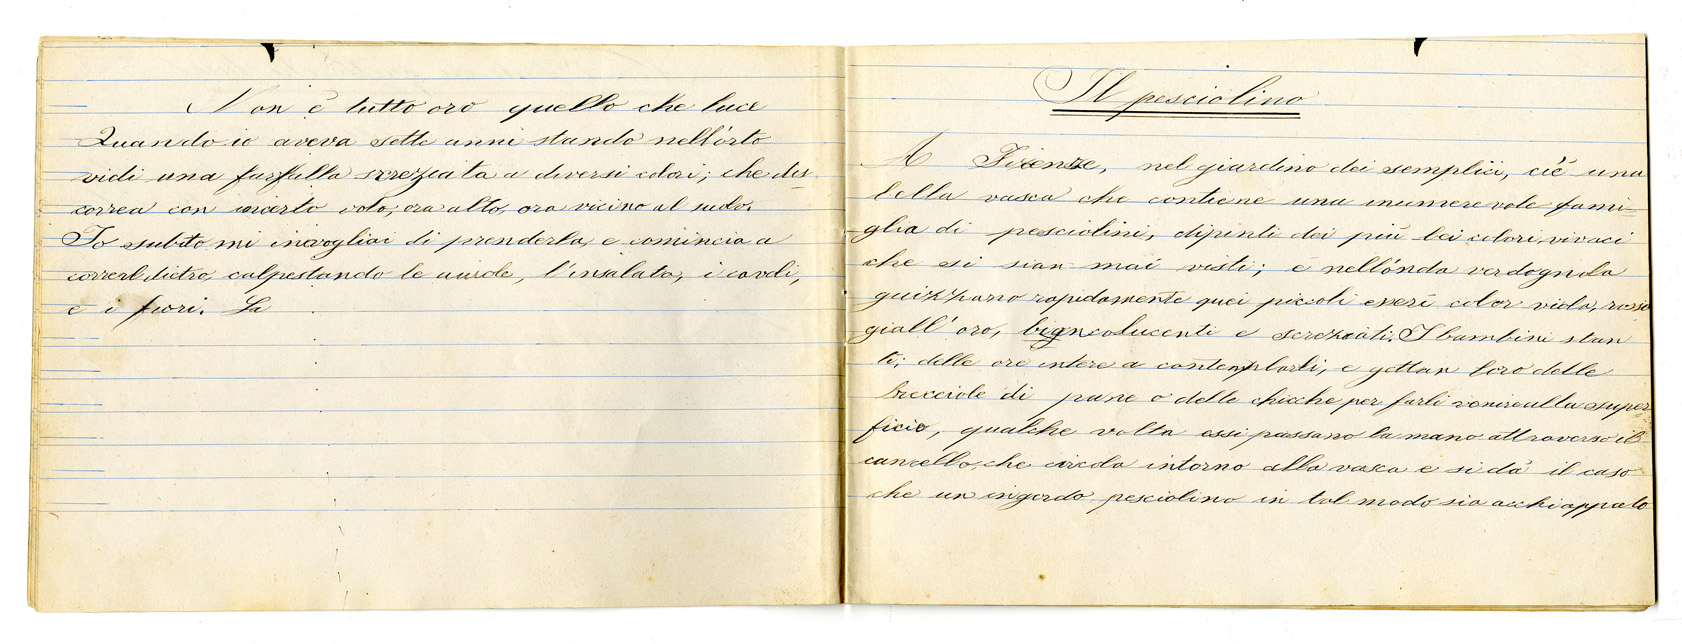 Non è tutto oro quello che luce
Quando io aveva sette anni stando nell'orto
vidi una farfalla screziata a diversi colori; che dis-
correa con incerto volo, ora alto, ora vicino al suolo.
Io subito mi invogliai di prenderla, e comincia a
correrl dietro, calpestando le aiuole, l'insalata, i cavoli,
e i fiori. La
Il pesciolino
A Firenze, nel giardino dei semplici, c'è una
bella vasca che contiene una inumerevole fami-
glia di pesciolini, dipinti dei più bei colori vivaci
che si sian mai visti; e nell'onda verdognola
guizzano rapidamente quei piccoli esseri color viola, rosso
giall'oro, biancolucenti e screziati. I bambini stan
ti, delle ore intere a contemplarli, e gettan loro delle
briciole di pane o delle chicche per farli venire alla super
ficie, qualche volta essi passano la mano attraverso il
cancello che circola intorno alla vasca e si dà il caso
che un ingordo pesciolino in tal modo sia acchiappato